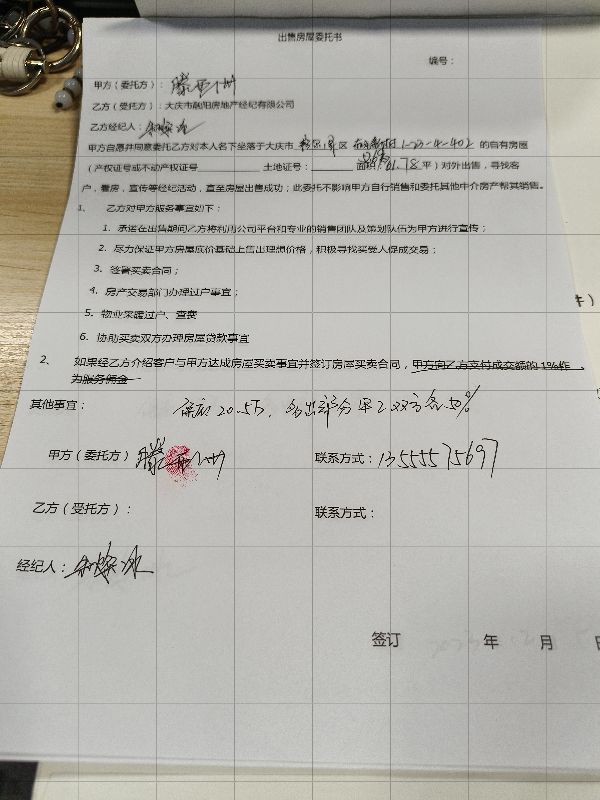 出售房屋委托书
编号：
甲方（委托方）：滕
乙方（受托方）：大庆市融阳房地产经纪有限公司
乙方经纪人：
甲方自愿并同意委托乙方对本人名下坐落于大庆市 区 1-23-4-402 的自有房屋
（产权证号或不动产权证号 土地证号： 面积：61.78 平）对外出售，寻找客
户，看房，宣传等经纪活动，直至房屋出售成功；此委托不影响甲方自行销售和委托其他中介房产帮其销售。
1、 乙方对甲方服务事宜如下：
1、承运在出售期间乙方将利用公司平台和专业的销售团队及策划队伍为甲方进行宣传；
2、尽力保证甲方房屋底价基础上售出理想价格，积极寻找买受人促成交易；
3、签署买卖合同；
4、房产交易部门办理过户事宜；
5、物业采暖过户、查费
6、协助买卖双方办理房屋贷款事宜
2、 如果经乙方介绍客户与甲方达成房屋买卖事宜并签订房屋买卖合同，甲方向乙方支付成交额的1%作
为服务佣金
其他事宜： 保底20.5万，多出部分甲乙双方各50%
甲方（委托方）滕 联系方式：13555575697
乙方（受托方）： 联系方式：
经纪人：
签订 年 月